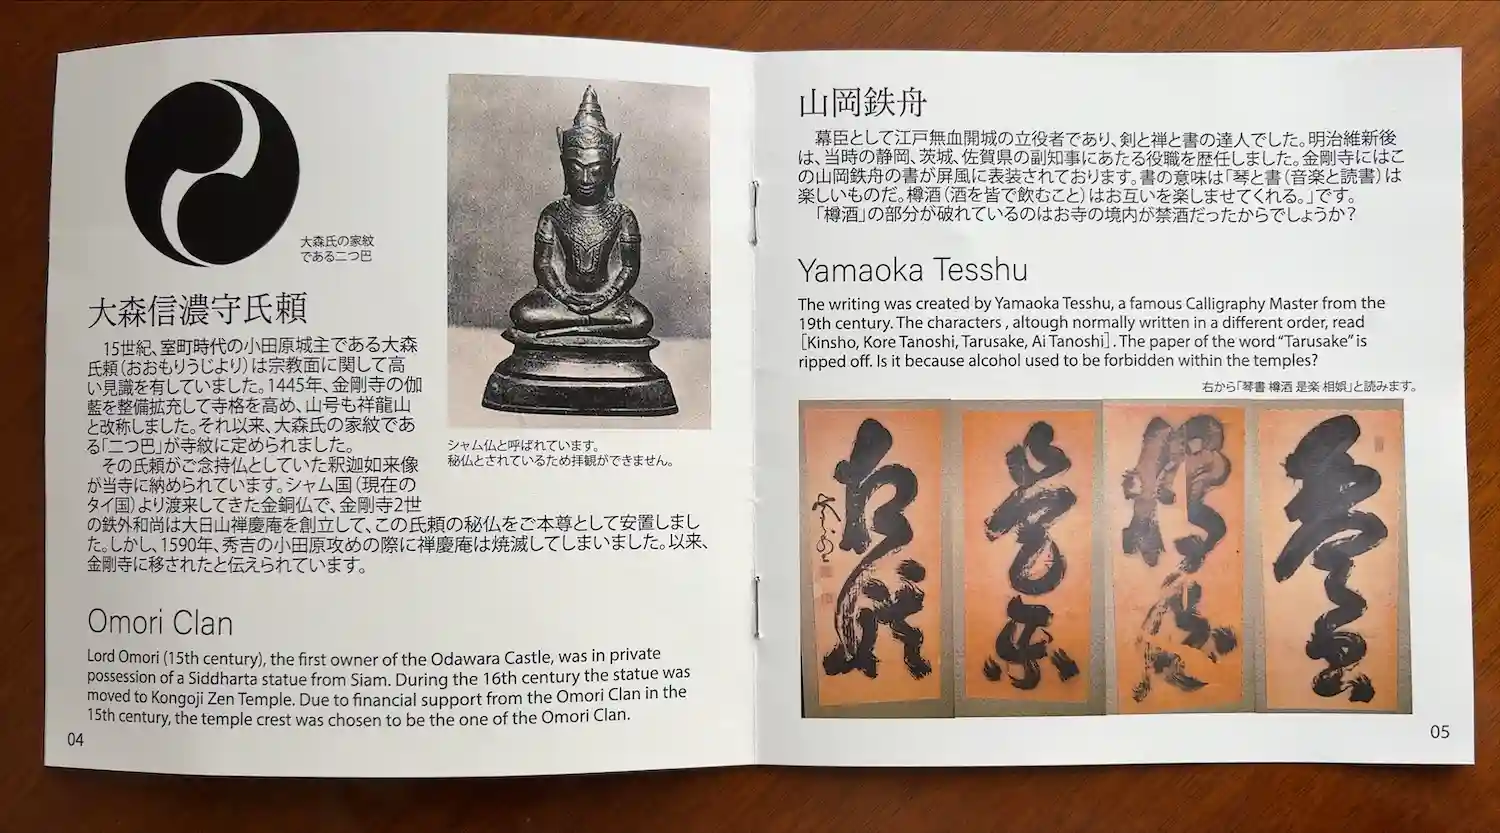 大森氏の家紋
である二つ巴
大森信濃守氏頼
15世紀、室町時代の小田原城主である大森
氏頼(おおもりうじより)は宗教面に関して高
い見識を有していました。1445年、金剛寺の伽
藍を整備拡充して寺格を高め、山号も祥龍山
と改称しました。それ以来、大森氏の家紋であ
る「二つ巴」が寺紋に定められました。
その氏頼がご念持仏としていた釈迦如来像
が当寺に納められています。シャム国(現在の
タイ国)より渡来してきた金銅仏で、金剛寺2世
の鉄外和尚は大日山禅慶庵を創立して、この氏頼の秘仏をご本尊として安置しまし
た。しかし、1590年、秀吉の小田原攻めの際に禅慶庵は焼滅してしまいました。以来、
金剛寺に移されたと伝えられています。
シャム仏と呼ばれています。
秘仏とされているため拝観ができません。
Omori Clan
Lord Omori (15th century), the first owner of the Odawara Castle, was in private
possession of a Siddharta statue from Siam. During the 16th century the statue was
moved to Kongoji Zen Temple. Due to financial support from the Omori Clan in the
15th century, the temple crest was chosen to be the one of the Omori Clan.
04
山岡鉄舟
幕臣として江戸無血開城の立役者であり、剣と禅と書の達人でした。明治維新後
は、当時の静岡、茨城、佐賀県の副知事にあたる役職を歴任しました。金剛寺にはこ
の山岡鉄舟の書が屏風に表装されております。書の意味は「琴と書(音楽と読書)は
楽しいものだ。樽酒(酒を皆で飲むこと)はお互いを楽しませてくれる。」です。
「樽酒」の部分が破れているのはお寺の境内が禁酒だったからでしょうか?
Yamaoka Tesshu
The writing was created by Yamaoka Tesshu, a famous Calligraphy Master from the
19th century. The characters , altough normally written in a different order, read
[Kinsho, Kore Tanoshi, Tarusake, Ai Tanoshi]. The paper of the word “Tarusake” is
ripped off. Is it because alcohol used to be forbidden within the temples?
右から「琴書 樽酒 是楽 相娯」と読みます。
琴書
樽酒
是楽
相娯
05